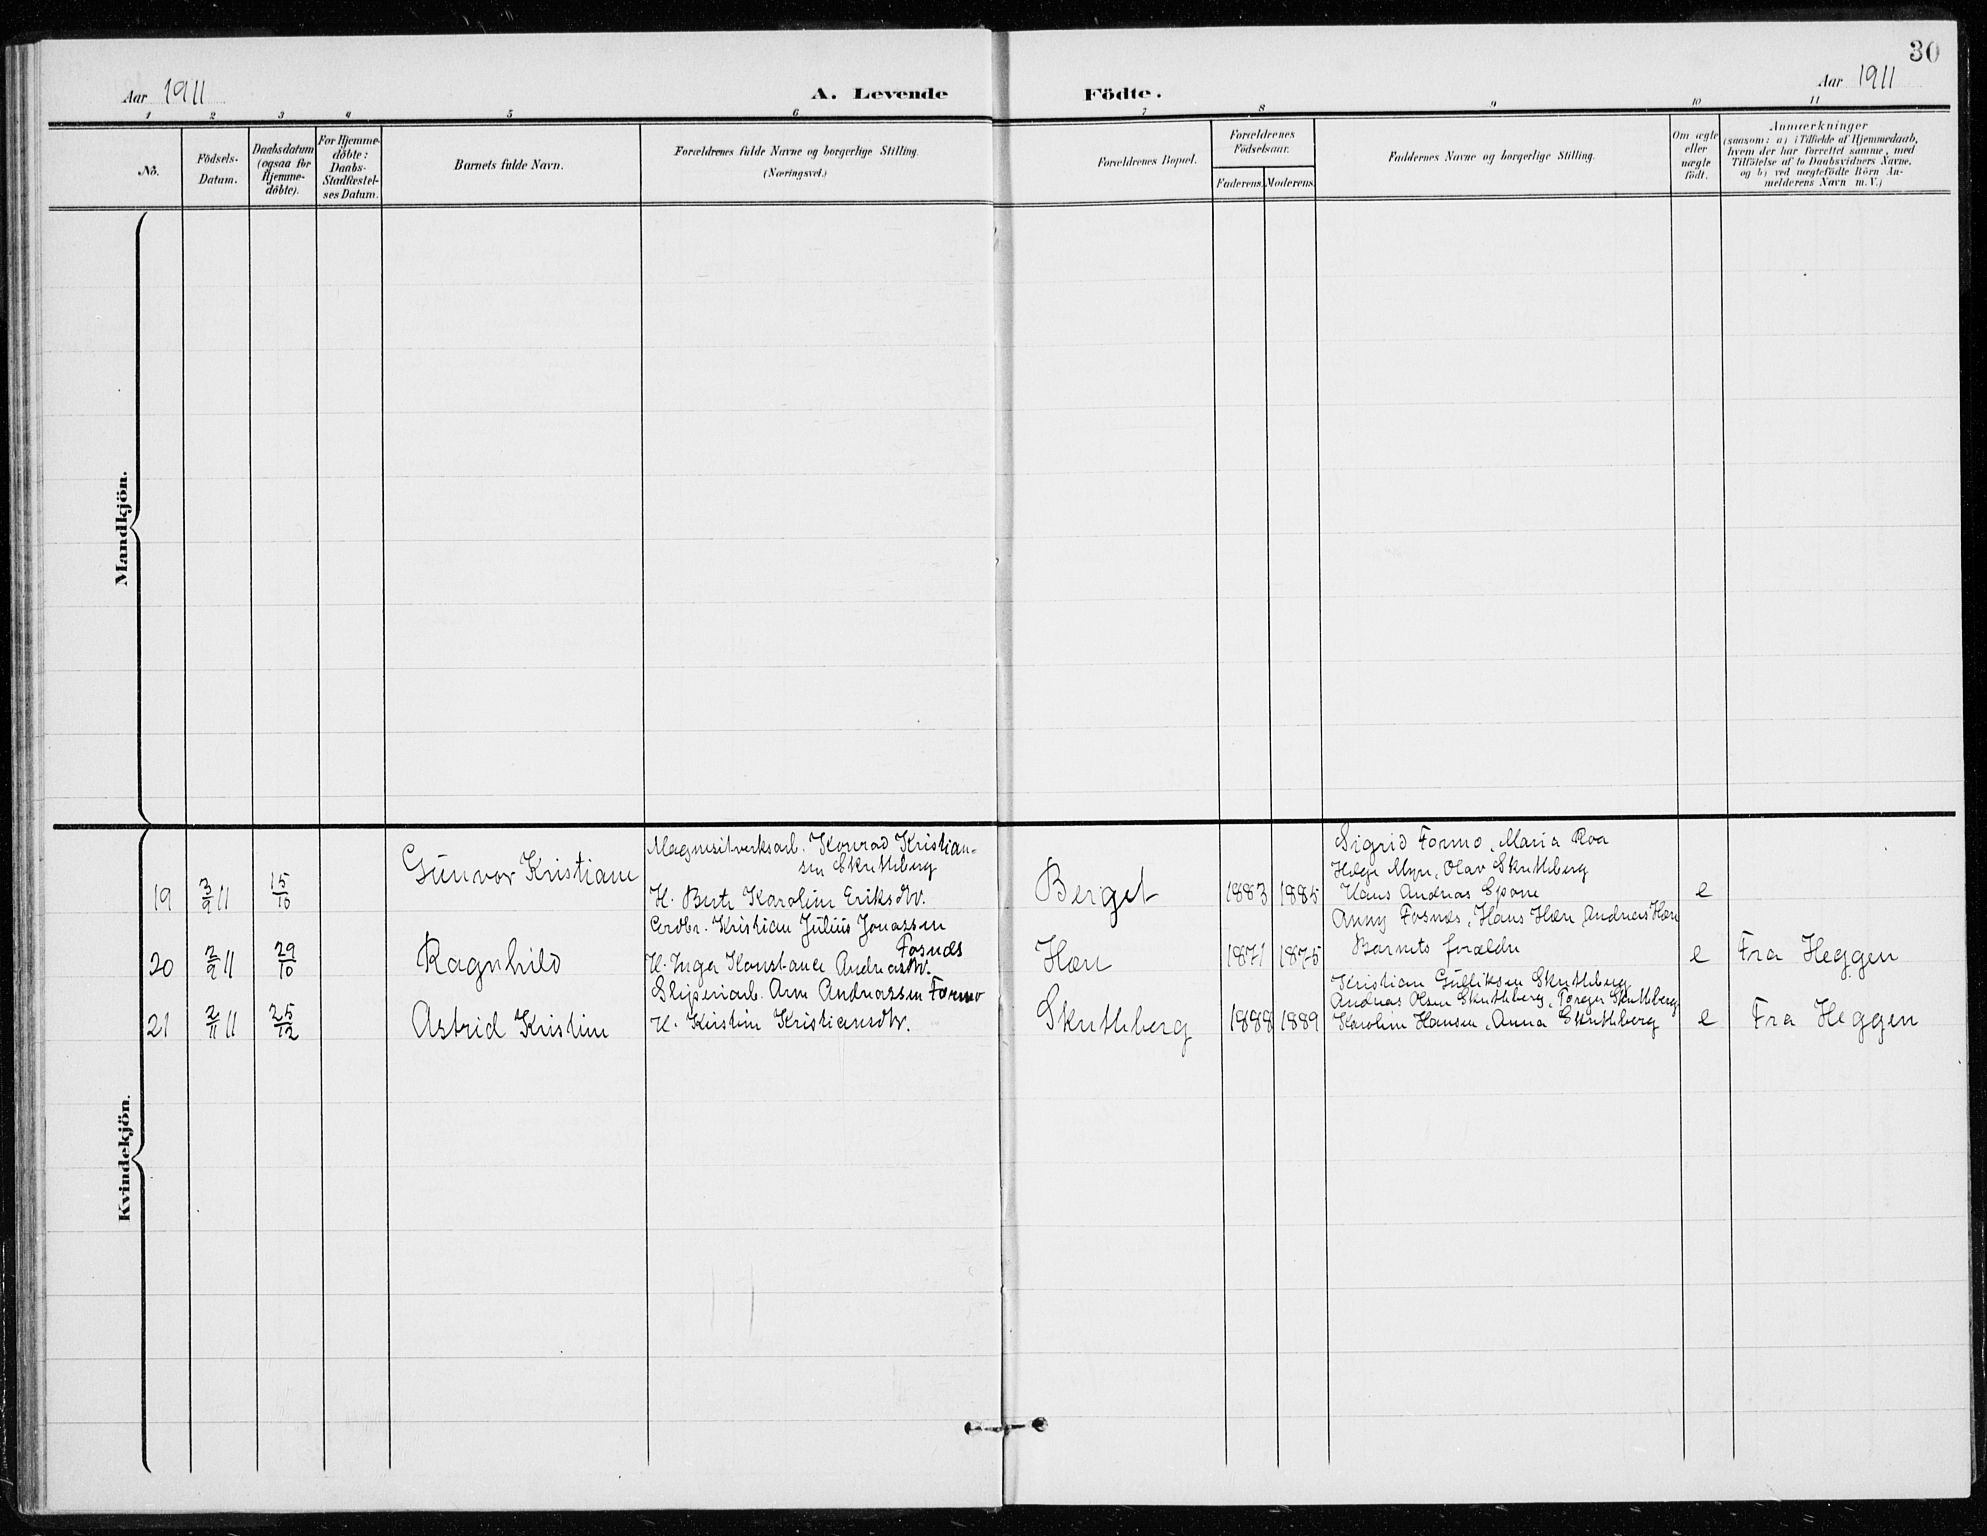 30
Aar 1911
A. Levende Födte.
Aar 1911
1 2 3 4 5 6 7 8 9 10 11
No.
Födsels-
Datum.
Daabsdatum
(ogsaa for
Hjemme-
döbte).
For Hjemme-
döbte:
Daabs-
Stadfæstel-
ses Datum.
Barnets fulde Navn.
Forældrenes fulde Navne og borgerlige Stilling.
(Næringsvei.)
Forældrenes Bopæl.
Forældrenes
Födselsaar.
Faderens. Moderens.
Faddernes Navne og borgerlige Stilling.
Om ægte
eller
uægte
födt.
Anmærkninger
(saasom: a) i Tilfælde af Hjemmedaab,
hvem der har forrettet samme, med
Tilföielse af to Daabsvidners Navne,
og b) ved uægtefödte Börn An-
melderens Navn m. V.)
Mandkjön.
Kvindekjön.
19 3/9 11 15/10 Gunvor Kristiane
Magnesitverksarb. Konrad Kristian-
sen Skuthberg
H. Berte Karoline Eriksdtr.
Berget 1883 1885
Sigrid Formo, Maria Roa
Helge Myre, Olav Skuthberg
Hans Andreas Spone
e
20 2/9 11 29/10 Ragnhild
Grdbr. Kristian Julius Jonassen
Fosnæs
H. Inga Konstance Andreasdtr.
Hæn 1871 1875
Anny Fosnæs, Hans Hæn, Andreas Hæn
Barnets forældre
e Fra Heggen
21 2/11 11 25/12 Astrid Kristine
Sliperiarb. Arne Andreassen Formo
H. Kirstine Kristiansdtr.
Skuthberg 1888 1889
Kristian Gulliksen Skuthberg
Andreas Olsen Skuthberg, Torger Skuthberg
Karoline Hansen, Anna Skuthberg
e Fra Heggen